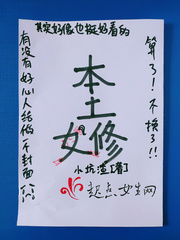 其实好像也挺好看的
算了！不换了!!
有没有好心人给做一个封面
本土
女修
小坑渣[著]
起点女生网